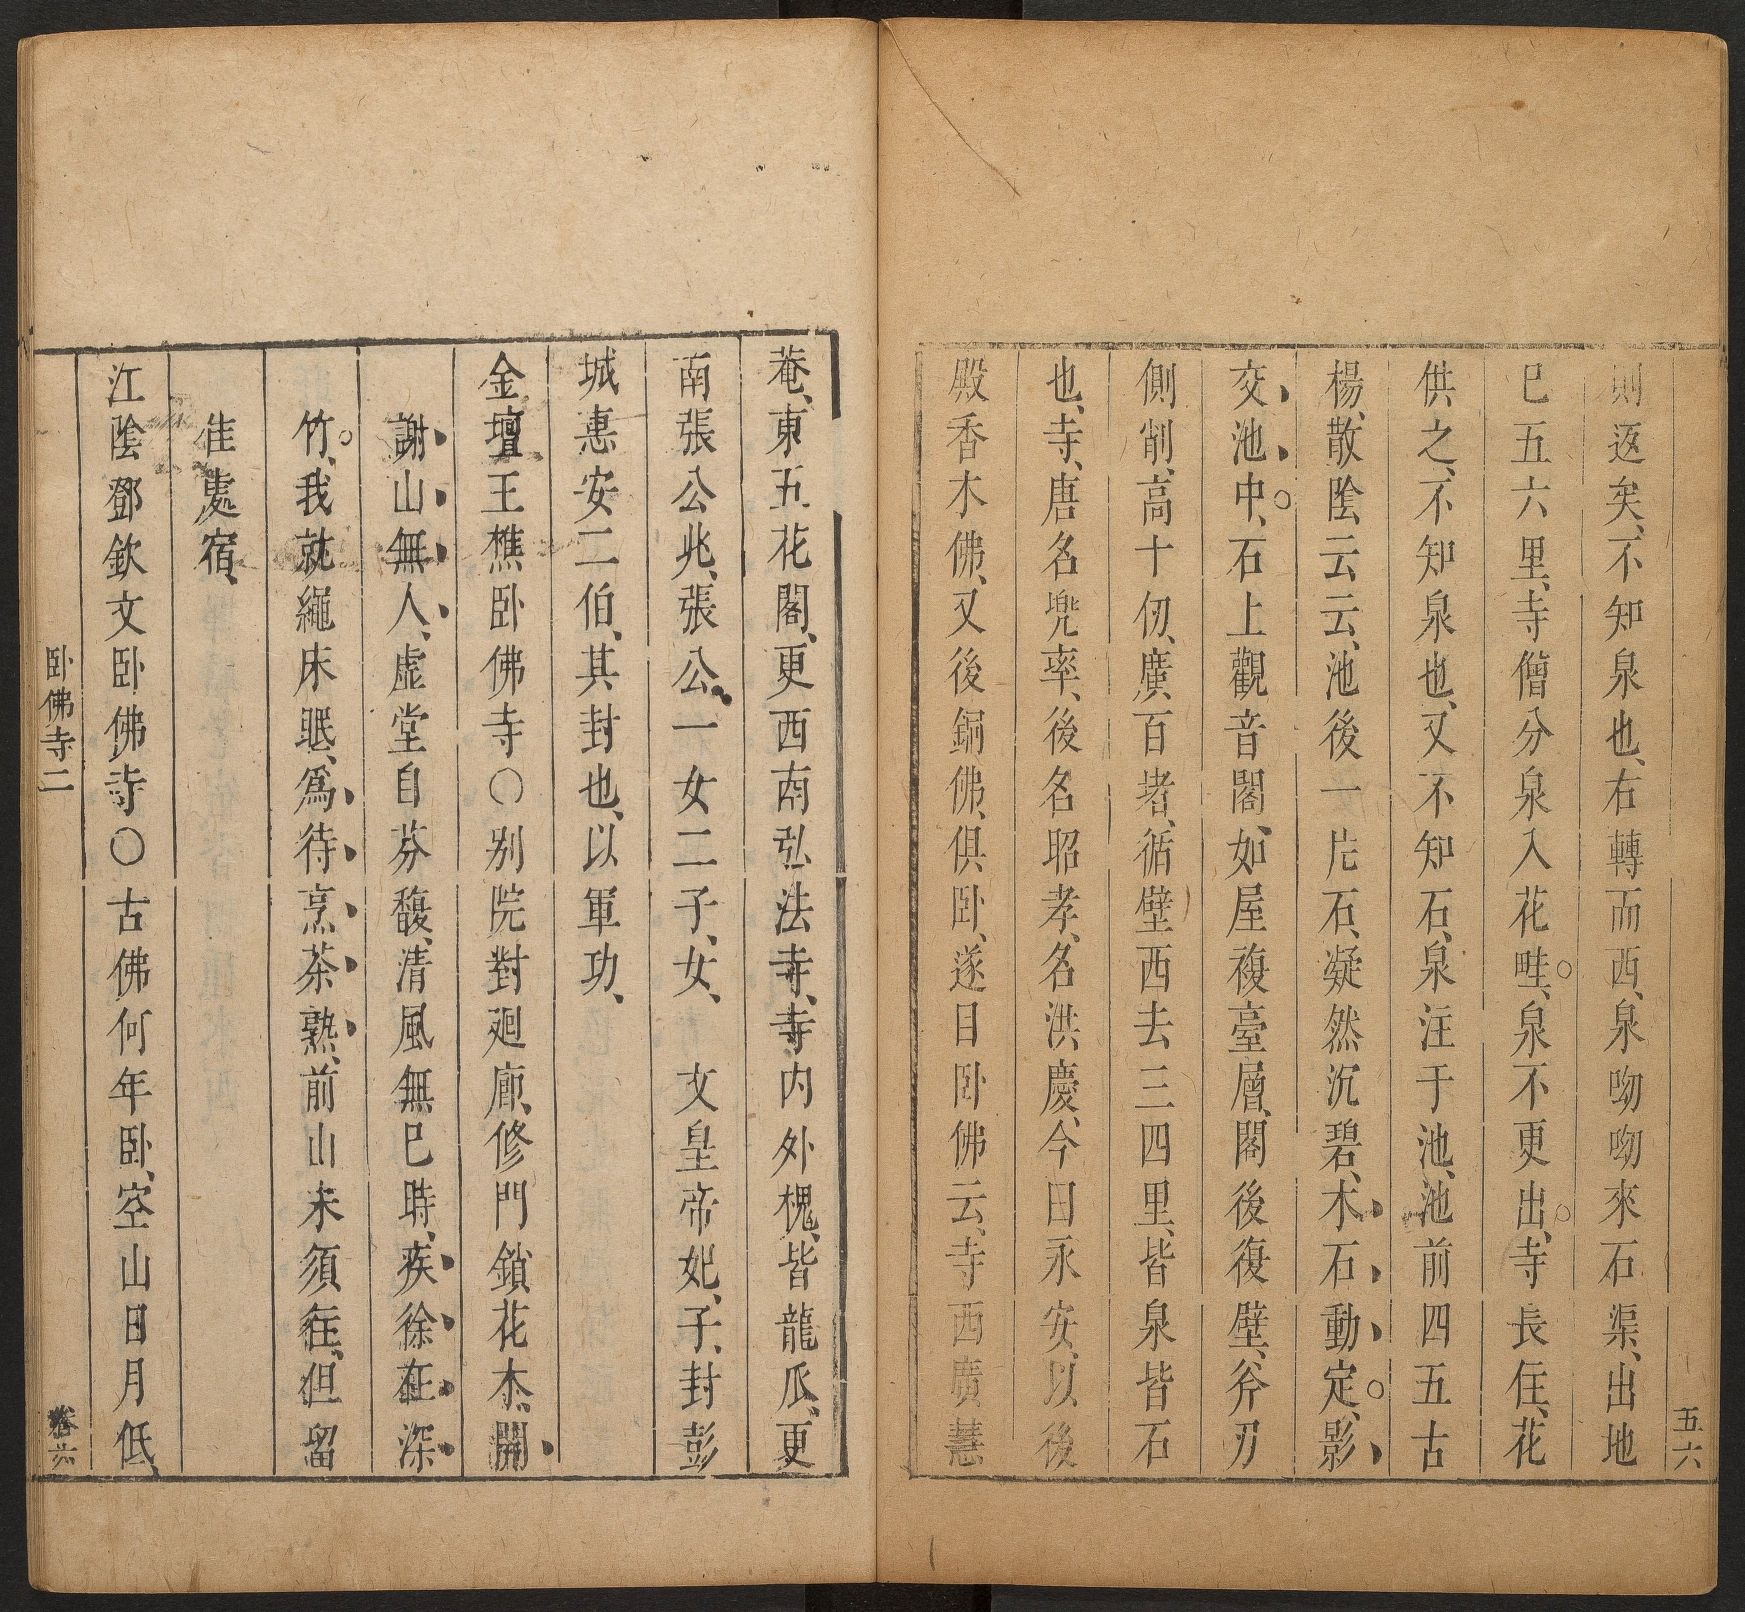 則返矣、不知泉也、右轉而西、泉吻吻來石渠、出地
巳五六里、寺僧分泉入花畦、泉不更出、寺長住、花
供之、不知泉也、又不知石、泉注于池、池前四五古
楊、散陰云云、池後一片石、凝然沉碧、木石動定、影
交池中、石上觀音閣、如屋複臺層、閣後復壁、斧刃
側削、高十仞、廣百堵、循壁西去三四里、皆泉皆石
也、寺、唐名兜率、後名昭孝、名洪慶、今曰永安、以後
殿香木佛、又後銅佛、俱臥、遂目臥佛云、寺西廣慧
五六
菴、東五花閣、更西南弘法寺、寺內外槐、皆龍爪、更
南張公兆、張公、一女二子、女、文皇帝妃、子、封彭
城惠安二伯、其封也、以軍功、
金壇王樵臥佛寺〇別院對廻廊、修門鎖花木、開
謝山無人、虛堂自芬馥、清風無巳時、疾徐在深
竹、我就繩床眠、爲待烹茶熟、前山未須往、但留
佳處宿、
江陰鄧欽文臥佛寺〇古佛何年臥、空山日月低
臥佛寺二
卷六